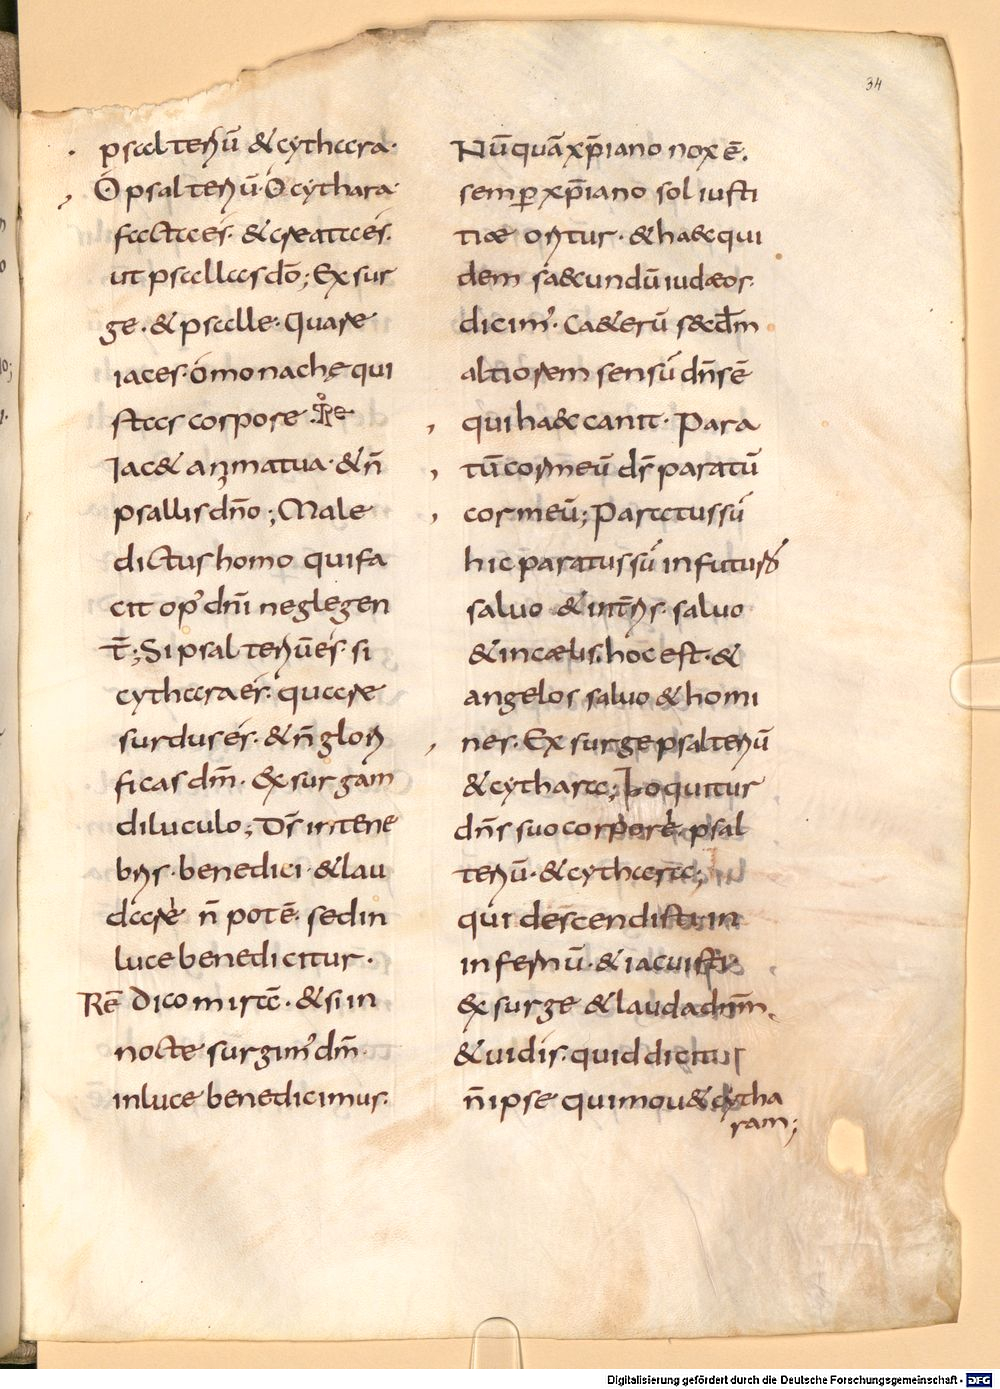 34
psalteriū &cythara·
O psalteriū·O cythara
factaes·&creataes·
ut psallasdō; Exsur
ge·&psalle·Quare
iaces·omonachę qui
stascorpore
Iac& anima tua·&n̄
psallisdn̄o; Male
dictushomo quifa
cit op' dn̄i neglegen
t̄; Si psalteriūes· si
cytharaes· quare
surduses·&n̄glori
ficas dm̄· Exsurgam
diluculo; Ds̄ intene
bris·benedici·&lau
dare n̄ potē· sedin
luce benedicitur·
Rē Dico mistē·&siin
nocte surgim' dm̄·
inluce benedicimus·
Nūquā xp̄iano nox ē·
semp xp̄iano sol iusti
tiæ oritur·&haec qui
dem saecundū iudæos·
dicim'· Ca&erū saecdm̄
altiorem sensū dn̄s ē
qui haec canit· Para
tū cor meū ds̄ paratū
cor meū; Paratus sū
hic paratus sū infuturo
saluo &interris· saluo
&incælis·hoc est·&
angelos saluo &homi
nes· Exsurge psalteriū
&cythara; Loquitur
dn̄s suo corpore·psal
teriū·&cythara;
qui descendisti in
infernū·&iacuisti
exsurge &lauda dnm̄·
&uidis·quid dicitur
n̄ ipse qui mou& cytha
ram;
Digitalisierung gefördert durch die Deutsche Forschungsgemeinschaft - DFG